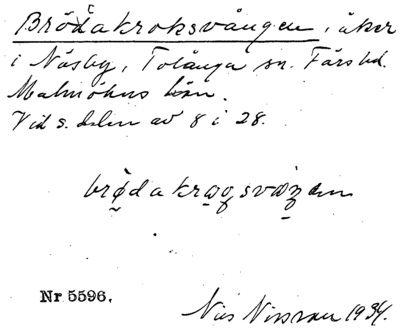 Brödakroksvången, åker
i Näsby, Tolånga sn. Färs hd.
Malmöhus län.
Vid s. delen av 8 i 28.
Nr 5596.
Nils Nilsson 1934.